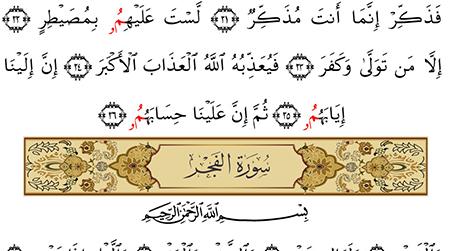 فَذَكِّرْ إِنَّمَا أَنتَ مُذَكِّرٌ ۝٢١ لَّسْتَ عَلَيْهِمُۥ بِمُصَيْطِرٍ ۝٢٢
إِلَّا مَن تَوَلَّىٰ وَكَفَرَ ۝٢٣ فَيُعَذِّبُهُ اللَّهُ الْعَذَابَ الْأَكْبَرَ ۝٢٤ إِنَّ إِلَيْنَا
إِيَابَهُمُۥ ۝٢٥ ثُمَّ إِنَّ عَلَيْنَا حِسَابَهُمُۥ ۝٢٦
سُورَةُ الْفَجْرِ
بِسْمِ اللَّهِ الرَّحْمَٰنِ الرَّحِيمِ